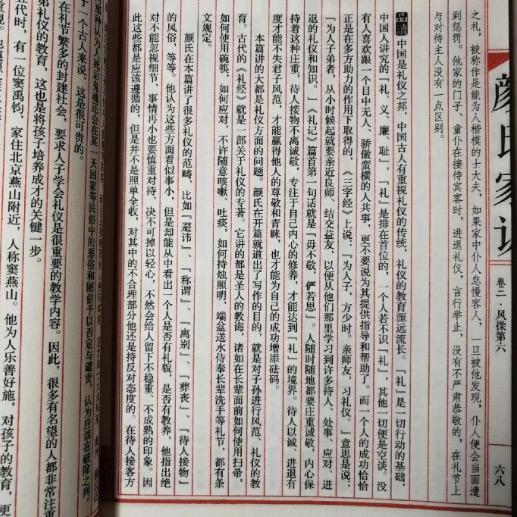 颜氏家训
卷二·风操第六
六八
之礼,被称作是能为人楷模的士大夫,如果家中仆人怠慢客人,一旦被他发现,仆人便会当面遭
到惩罚。他家的门子、童仆在接待宾客时,进退礼仪,言行举止,没有不严肃恭敬的,在礼节上
与对待主人没有一点区别。
中国是礼仪之邦,中国古人有重视礼仪的传统,礼仪的教育源远流长。「礼」是一切行动的基础,
中国人讲究的「礼、义、廉、耻」,「礼」是排在首位的,一个人若不识「礼」,其他一切便是空谈。没
有人喜欢跟一个目中无人、骄傲蛮横的人共事,更不要说为其提供指导和帮助了。而一个人的成功恰恰
正是在多方助力的作用下取得的,《三字经》上说,「为人子,方少时,亲师友,习礼仪。」意思是说,
为人子弟者,从小时候起就要亲近良师、结交益友,以便从他们那里学习到许多待人、处事、应对、进
退的礼仪和知识。《礼记》篇首第一句话就是「毋不敬,俨若思」。人随时随地都要庄重诚敬,内心保
持着这种庄重,待人接物不离诚敬,专注于自己内心的修养,才能达到「礼」的境界。待人以诚,进退有
度才能不失君子风范,才能赢得他人的尊敬和青睐,也才能为自己的成功增添砝码。
本篇讲的大都是礼仪方面的问题。颜氏在开篇就道出了写作的目的,就是对子孙进行风范、礼仪的教
育。古代的《礼经》就是一部关于礼仪的专著,它讲的都是圣人的教诲,诸如在长辈面前如何使用扫帚,
如何使用碗筷,如何应对,不许随意咳嗽、吐痰,如何持烛照明,端盆送水侍奉长辈洗手等礼节,都有条
文规定。
颜氏在本篇讲了很多礼仪的范畴,比如「避讳」、「称谓」、「离别」、「葬丧」、「待人接物」
的风俗,等等。他认为这些方面看似事小,但是却能从中看出一个人是否有礼貌,是否有教养,他指出绝
对不能忽视细节,事情再小也要慎重对待,决不可掉以轻心,不然会给人留下不稳重、不成熟的印象。因
此这些都是应该遵循的,但是并不是照单全收,对其中的不合理部分他还是持反对态度的,在待人接客方
于一个古人来说,这是很可贵的。
在礼节繁多的封建社会,要求人子学会礼仪是很重要的教学内容。因此,很多有名望的人都非常注重
弟礼仪的教育,这也是将孩子培养成才的关键一步。
五代时,有一位窦禹钧,家住北京燕山附近,人称窦燕山。他为人乐善好施,对孩子的教育,更